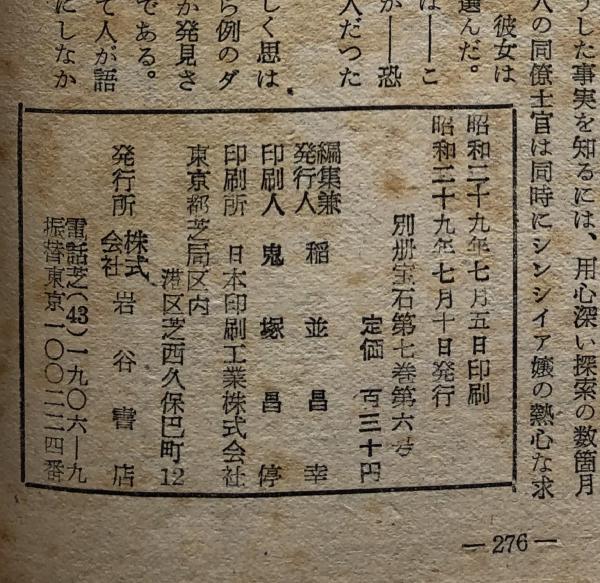 うした事実を知るには、用心深い探索の数箇月
人の同僚士官は同時にシンシイア嬢の熱心な求
彼女は
選んだ。
は――こ
か――恐
人だつた
しく思は
ら例のダ
か発見さ
である。
て人が語
にしなか
昭和二十九年七月五日印刷
昭和二十九年七月十日発行
別册宝石第七巻第六号
定価 百三十円
編集兼
発行人 稲並昌幸
印刷人 鬼塚昌停
印刷所 日本印刷工業株式会社
東京都芝局区内
港区芝西久保巴町12
発行所 株式会社 岩谷書店
電話芝(43)一九〇六―九
振替東京一〇〇二二四番
―276―